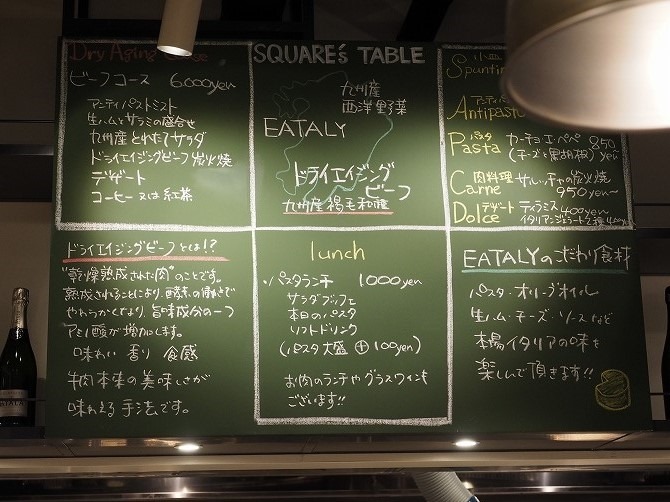 Dry Aging
ビーフコース 6,000yen
アンティパストミスト
生ハムとサラミの盛合せ
九州産とれたてサラダ
ドライエイジングビーフ炭火焼
デザート
コーヒー又は紅茶
SQUARE's TABLE
九州産
西洋野菜
EATALY
ドライエイジング
ビーフ
九州産褐毛和種
小皿
Spuntin
アンティパ
Antipast
パスタ
Pasta カーチョ・エ・ペペ 850
(チーズと黒胡椒) yen
肉料理
Carne サルシッチャの炭火焼
950yen~
デザート
Dolce ティラミス 400yen~
イタリアンジェラート2種
ドライエイジングビーフとは!?
"乾燥熟成された肉"のことです。
熟成されることにより、酵素の働きで
やわらかくなり、旨味成分の一つ
アミノ酸が増加します。
味わい 香り 食感
牛肉本来の美味しさが
味わえる手法です。
lunch
パスタランチ 1000yen
サラダブッフェ
本日のパスタ
ソフトドリンク
(パスタ大盛 ⊕100yen)
お肉のランチやグラスワインも
ございます!!
EATALYのこだわり食料
パスタ・オリーブオイル
生ハム・チーズ・ソースなど
本場イタリアの味を
楽しんで頂きます!!